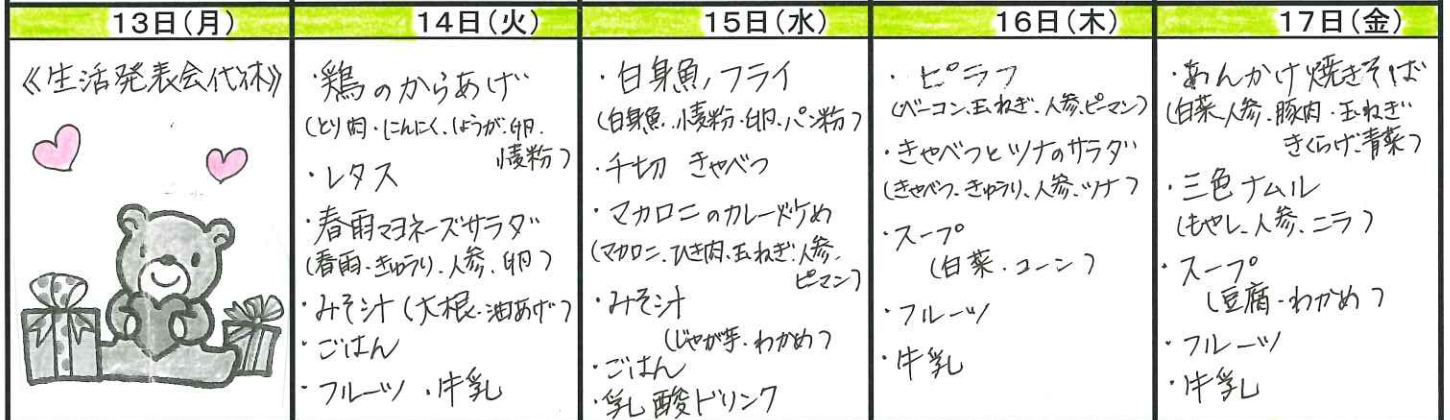 13日(月)
《生活発表会代休》
14日(火)
・鶏のからあげ
(とり肉・にんにく、しょうが、卵、
小麦粉)
・レタス
・春雨マヨネーズサラダ
(春雨・きゅうり、人参、卵)
・みそ汁(大根・油あげ)
・ごはん
・フルーツ ・牛乳
15日(水)
・白身魚フライ
(白身魚、小麦粉・卵、パン粉)
・千切 きゃべつ
・マカロニのカレー炒め
(マカロニ、ひき肉、玉ねぎ、人参、
ピーマン)
・みそ汁
(じゃが芋・わかめ)
・ごはん
・乳酸ドリンク
16日(木)
・ピラフ
(ベーコン、玉ねぎ、人参、ピーマン)
・きゃべつとツナのサラダ
(きゃべつ、きゅうり、人参、ツナ)
・スープ
(白菜・コーン)
・フルーツ
・牛乳
17日(金)
・あんかけ焼きそば
(白菜、人参、豚肉・玉ねぎ
きくらげ、青菜)
・三色ナムル
(もやし、人参、ニラ)
・スープ
(豆腐・わかめ)
・フルーツ
・牛乳